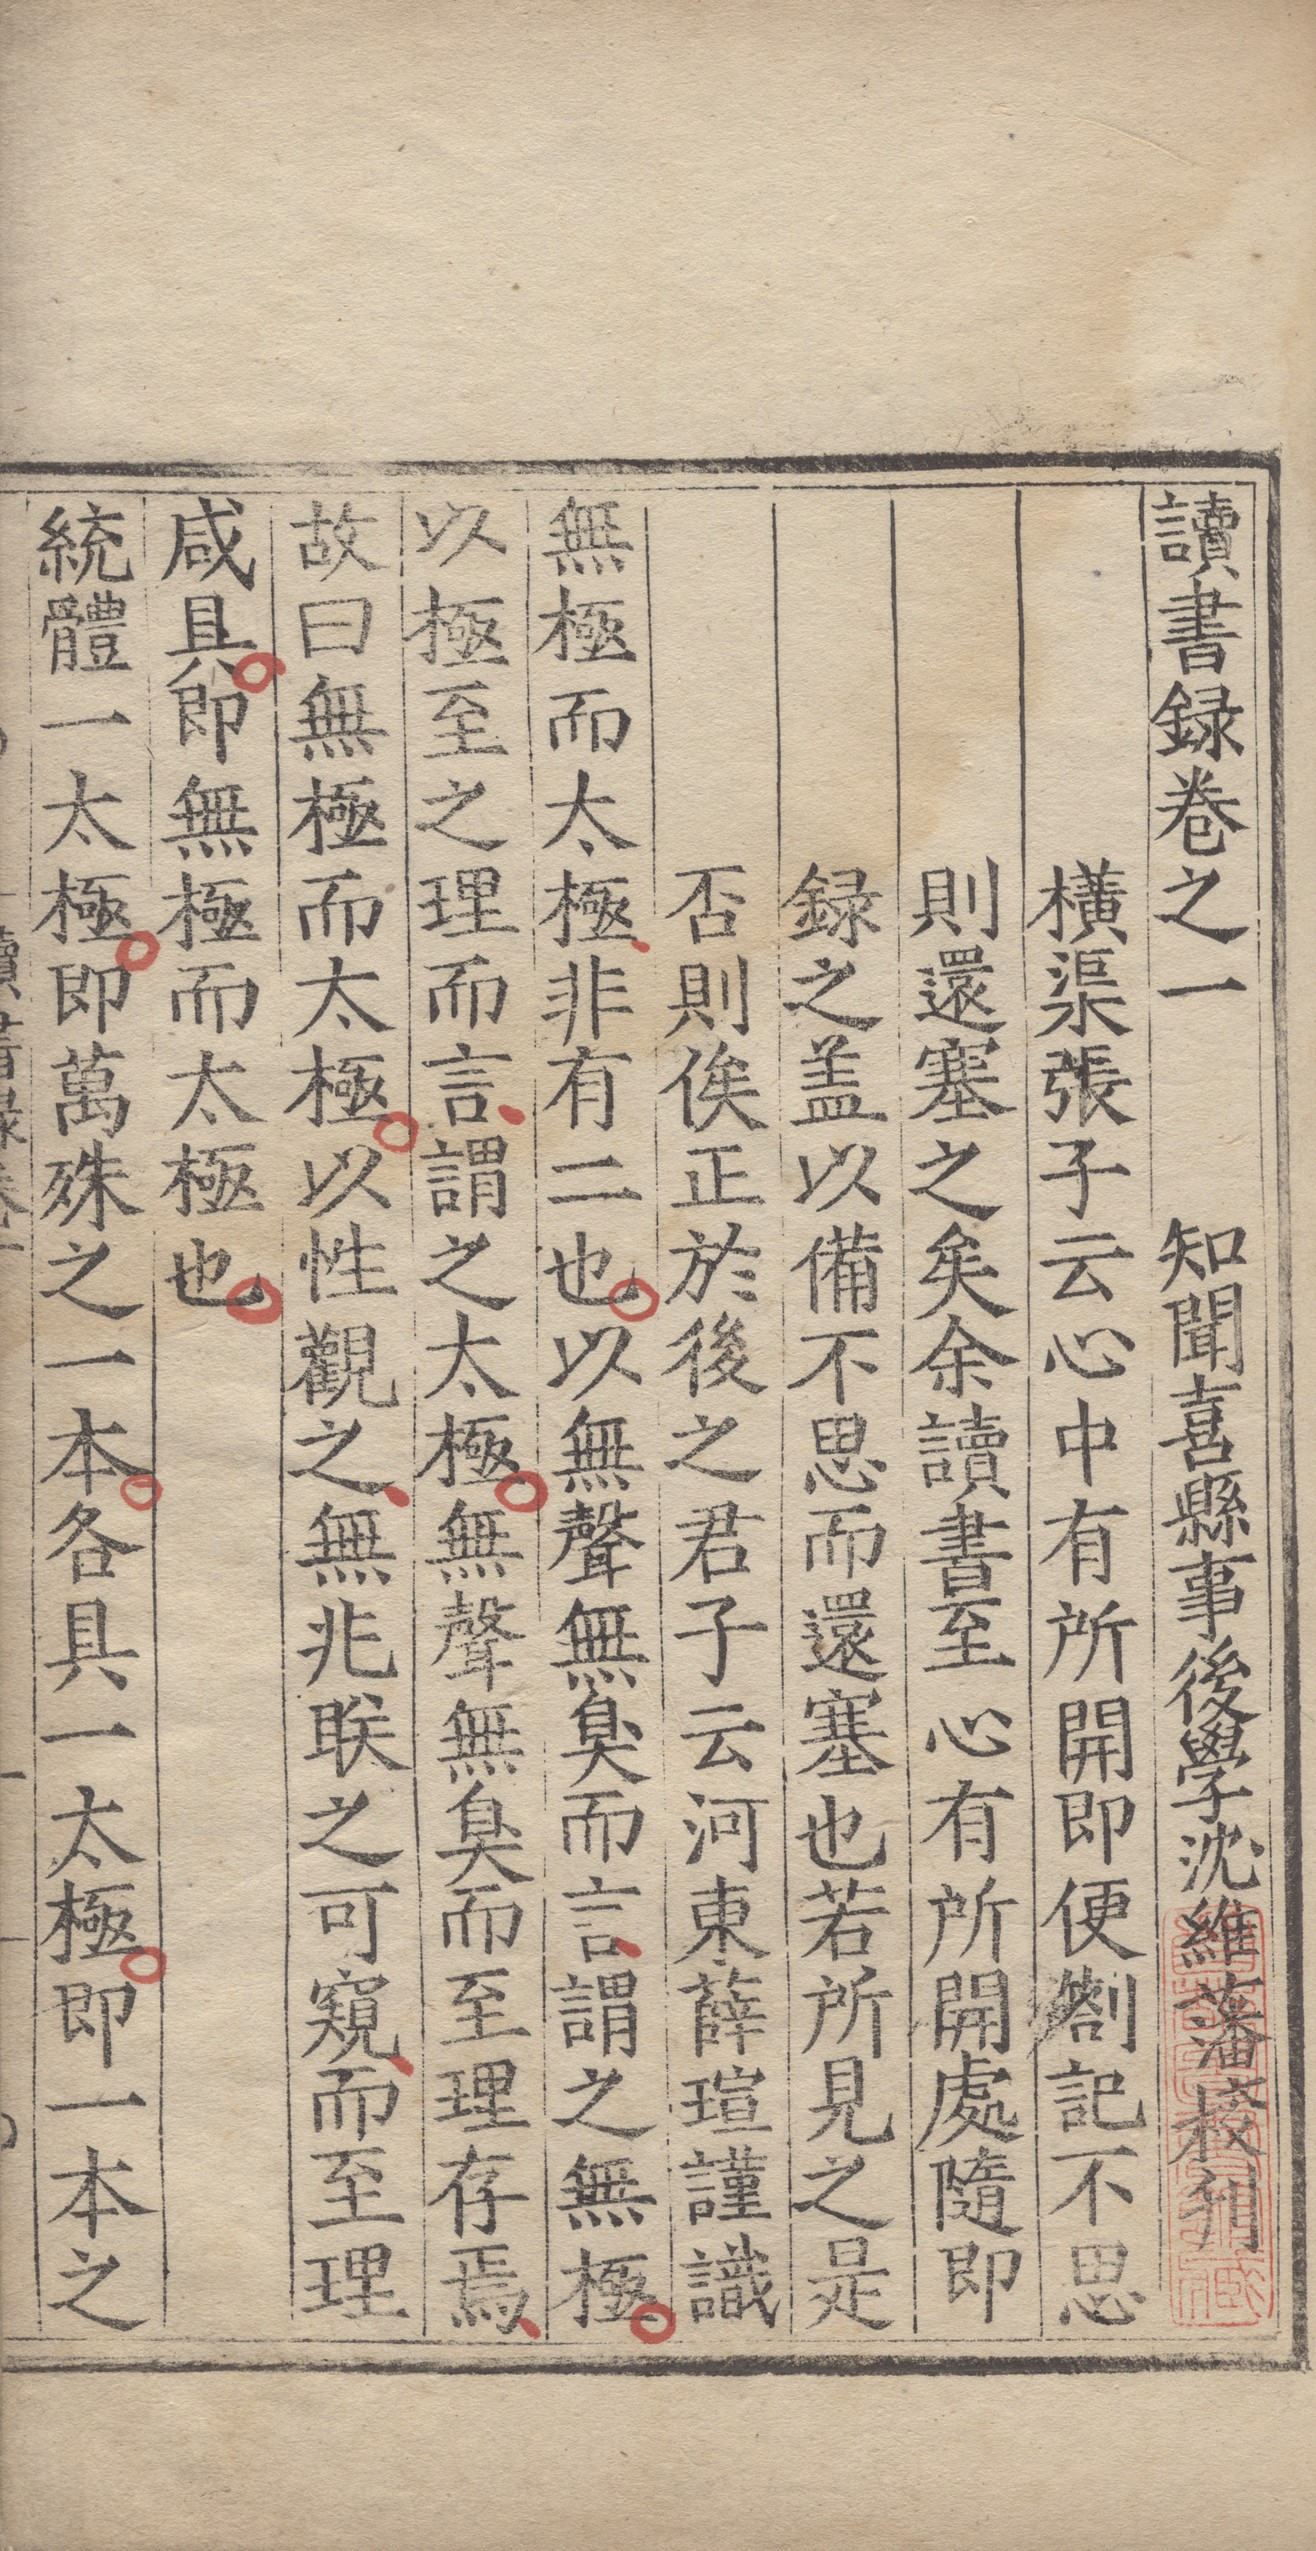 讀書録卷之一 知聞喜縣事後學沈維藩校刋
橫渠張子云心中有所開即便劄記不思
則還塞之矣余讀書至心有所開處隨即
録之盖以備不思而還塞也若所見之是
否則俟正於後之君子云河東薛瑄謹識
無極而太極非有二也以無聲無臭而言謂之無極
以極至之理而言謂之太極無聲無臭而至理存焉
故曰無極而太極以性觀之無兆眹之可窺而至理
咸具即無極而太極也
統體一太極即萬殊之一本各具一太極即一本之